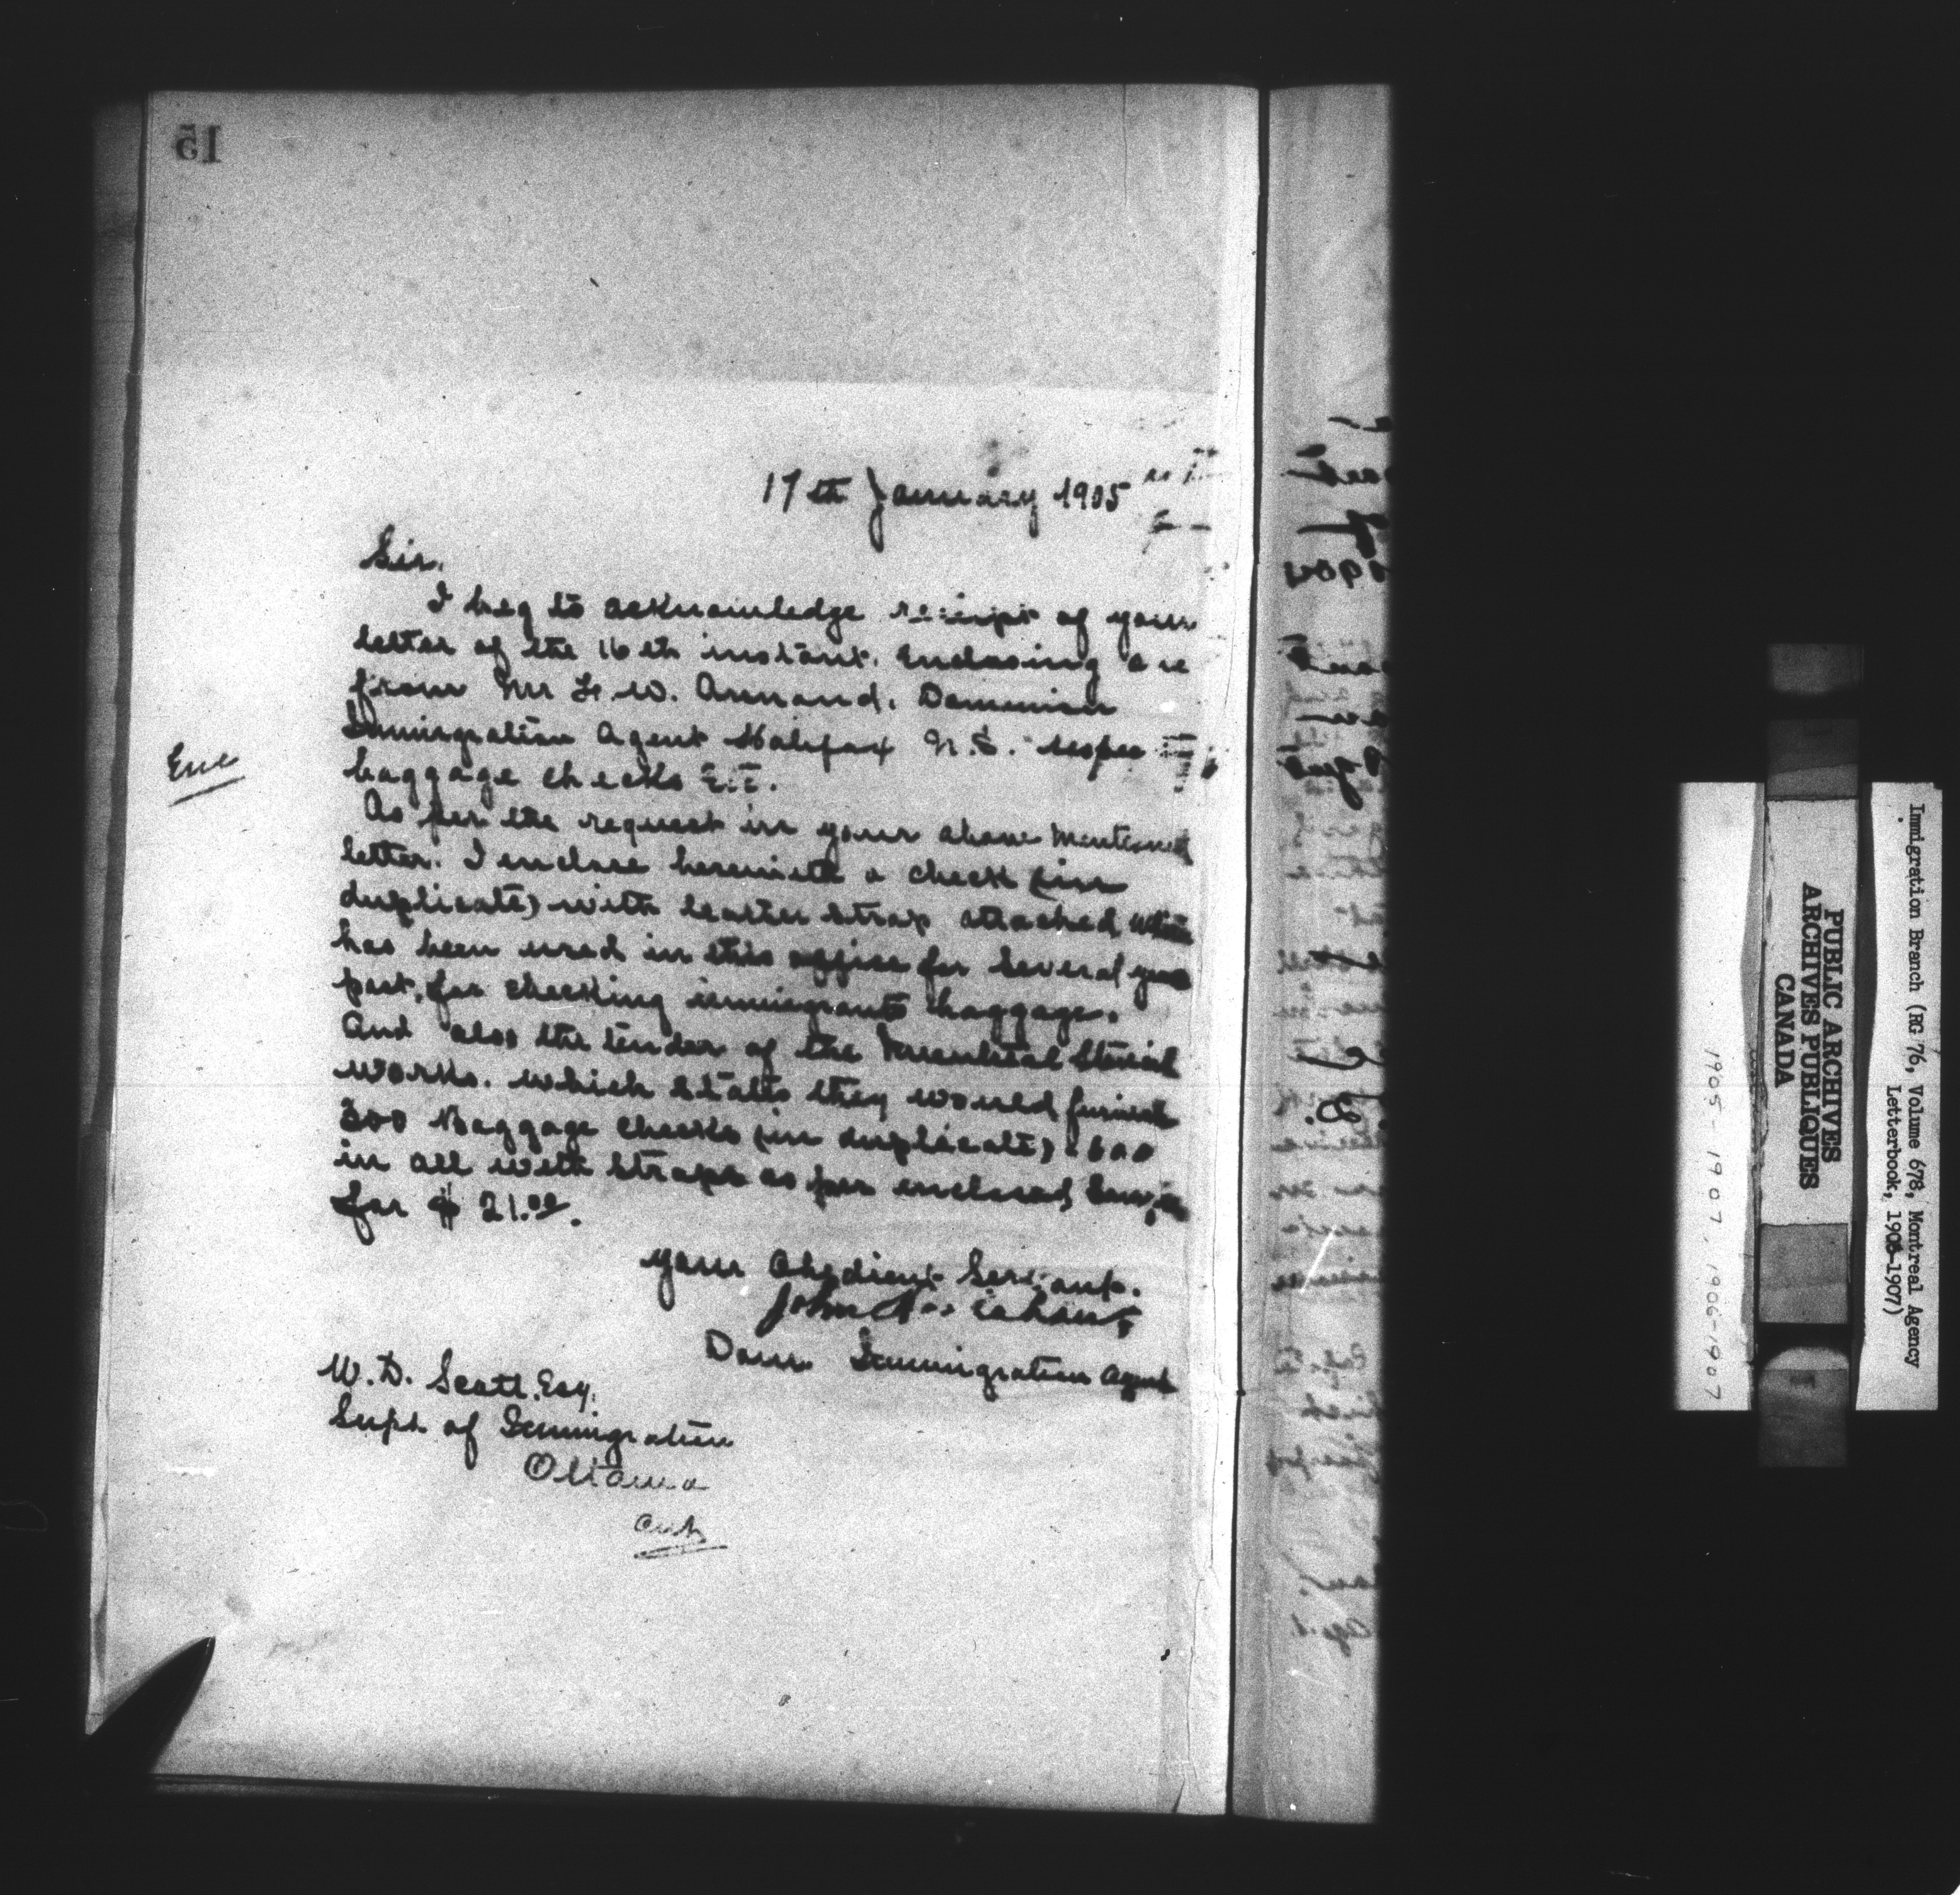 15
17th January 1905
Sir.
I beg to acknowledge receipt of your
letter of the 16th instant. Enclosing one
from Mr F. W. Annand. Dominion
Immigration Agent Halifax N.S. respec
baggage checks Etc.
Enc
As per the request in your above mentioned
letter. I enclose herewith a check (in
duplicate) with leather strap attached which
has been used in this office for several years
past, for checking immigrants baggage.
And also the tender of the Montreal Stencil
works. which states they would furnish
300 Baggage checks (in duplicate) 600
in all with straps as per enclosed sample
for $ 21.00.
Your Obedient Servant.
John
Dom Immigration Agent
W. D. Scott. Esq.
Supt of Immigration
Ottawa
Ont
Immigration Branch (RG 76, Volume 678, Montreal Agency
Letterbook, 1905-1907)
PUBLIC ARCHIVES
ARCHIVES PUBLIQUES
CANADA
1905-1907, 1906-1907